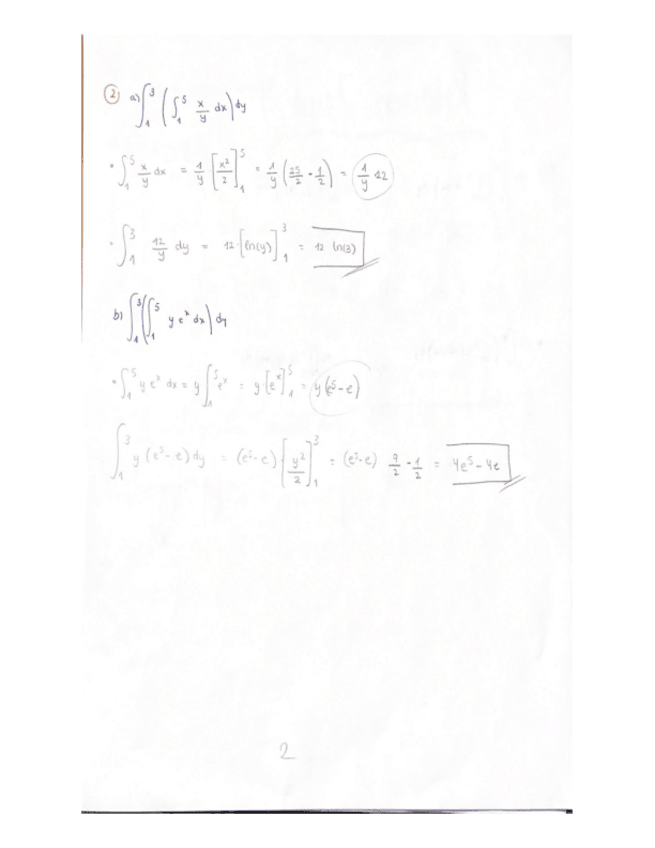 ② a) ∫₁³ (∫₁⁵ x/y dx) dy
• ∫₁⁵ x/y dx = 1/y [x²/2]₁⁵ = 1/y (25/2 - 1/2) = 1/y 12
• ∫₁³ 12/y dy = 12 · [ln(y)]₁³ = 12 ln(3)
b) ∫₁³ (∫₁⁵ y eˣ dx) dy
• ∫₁⁵ y eˣ dx = y ∫₁⁵ eˣ = y [eˣ]₁⁵ = y (e⁵ - e)
∫₁³ y (e⁵ - e) dy = (e⁵ - e) · [y²/2]₁³ = (e⁵ - e) 9/2 - 1/2 = 4e⁵ - 4e
2